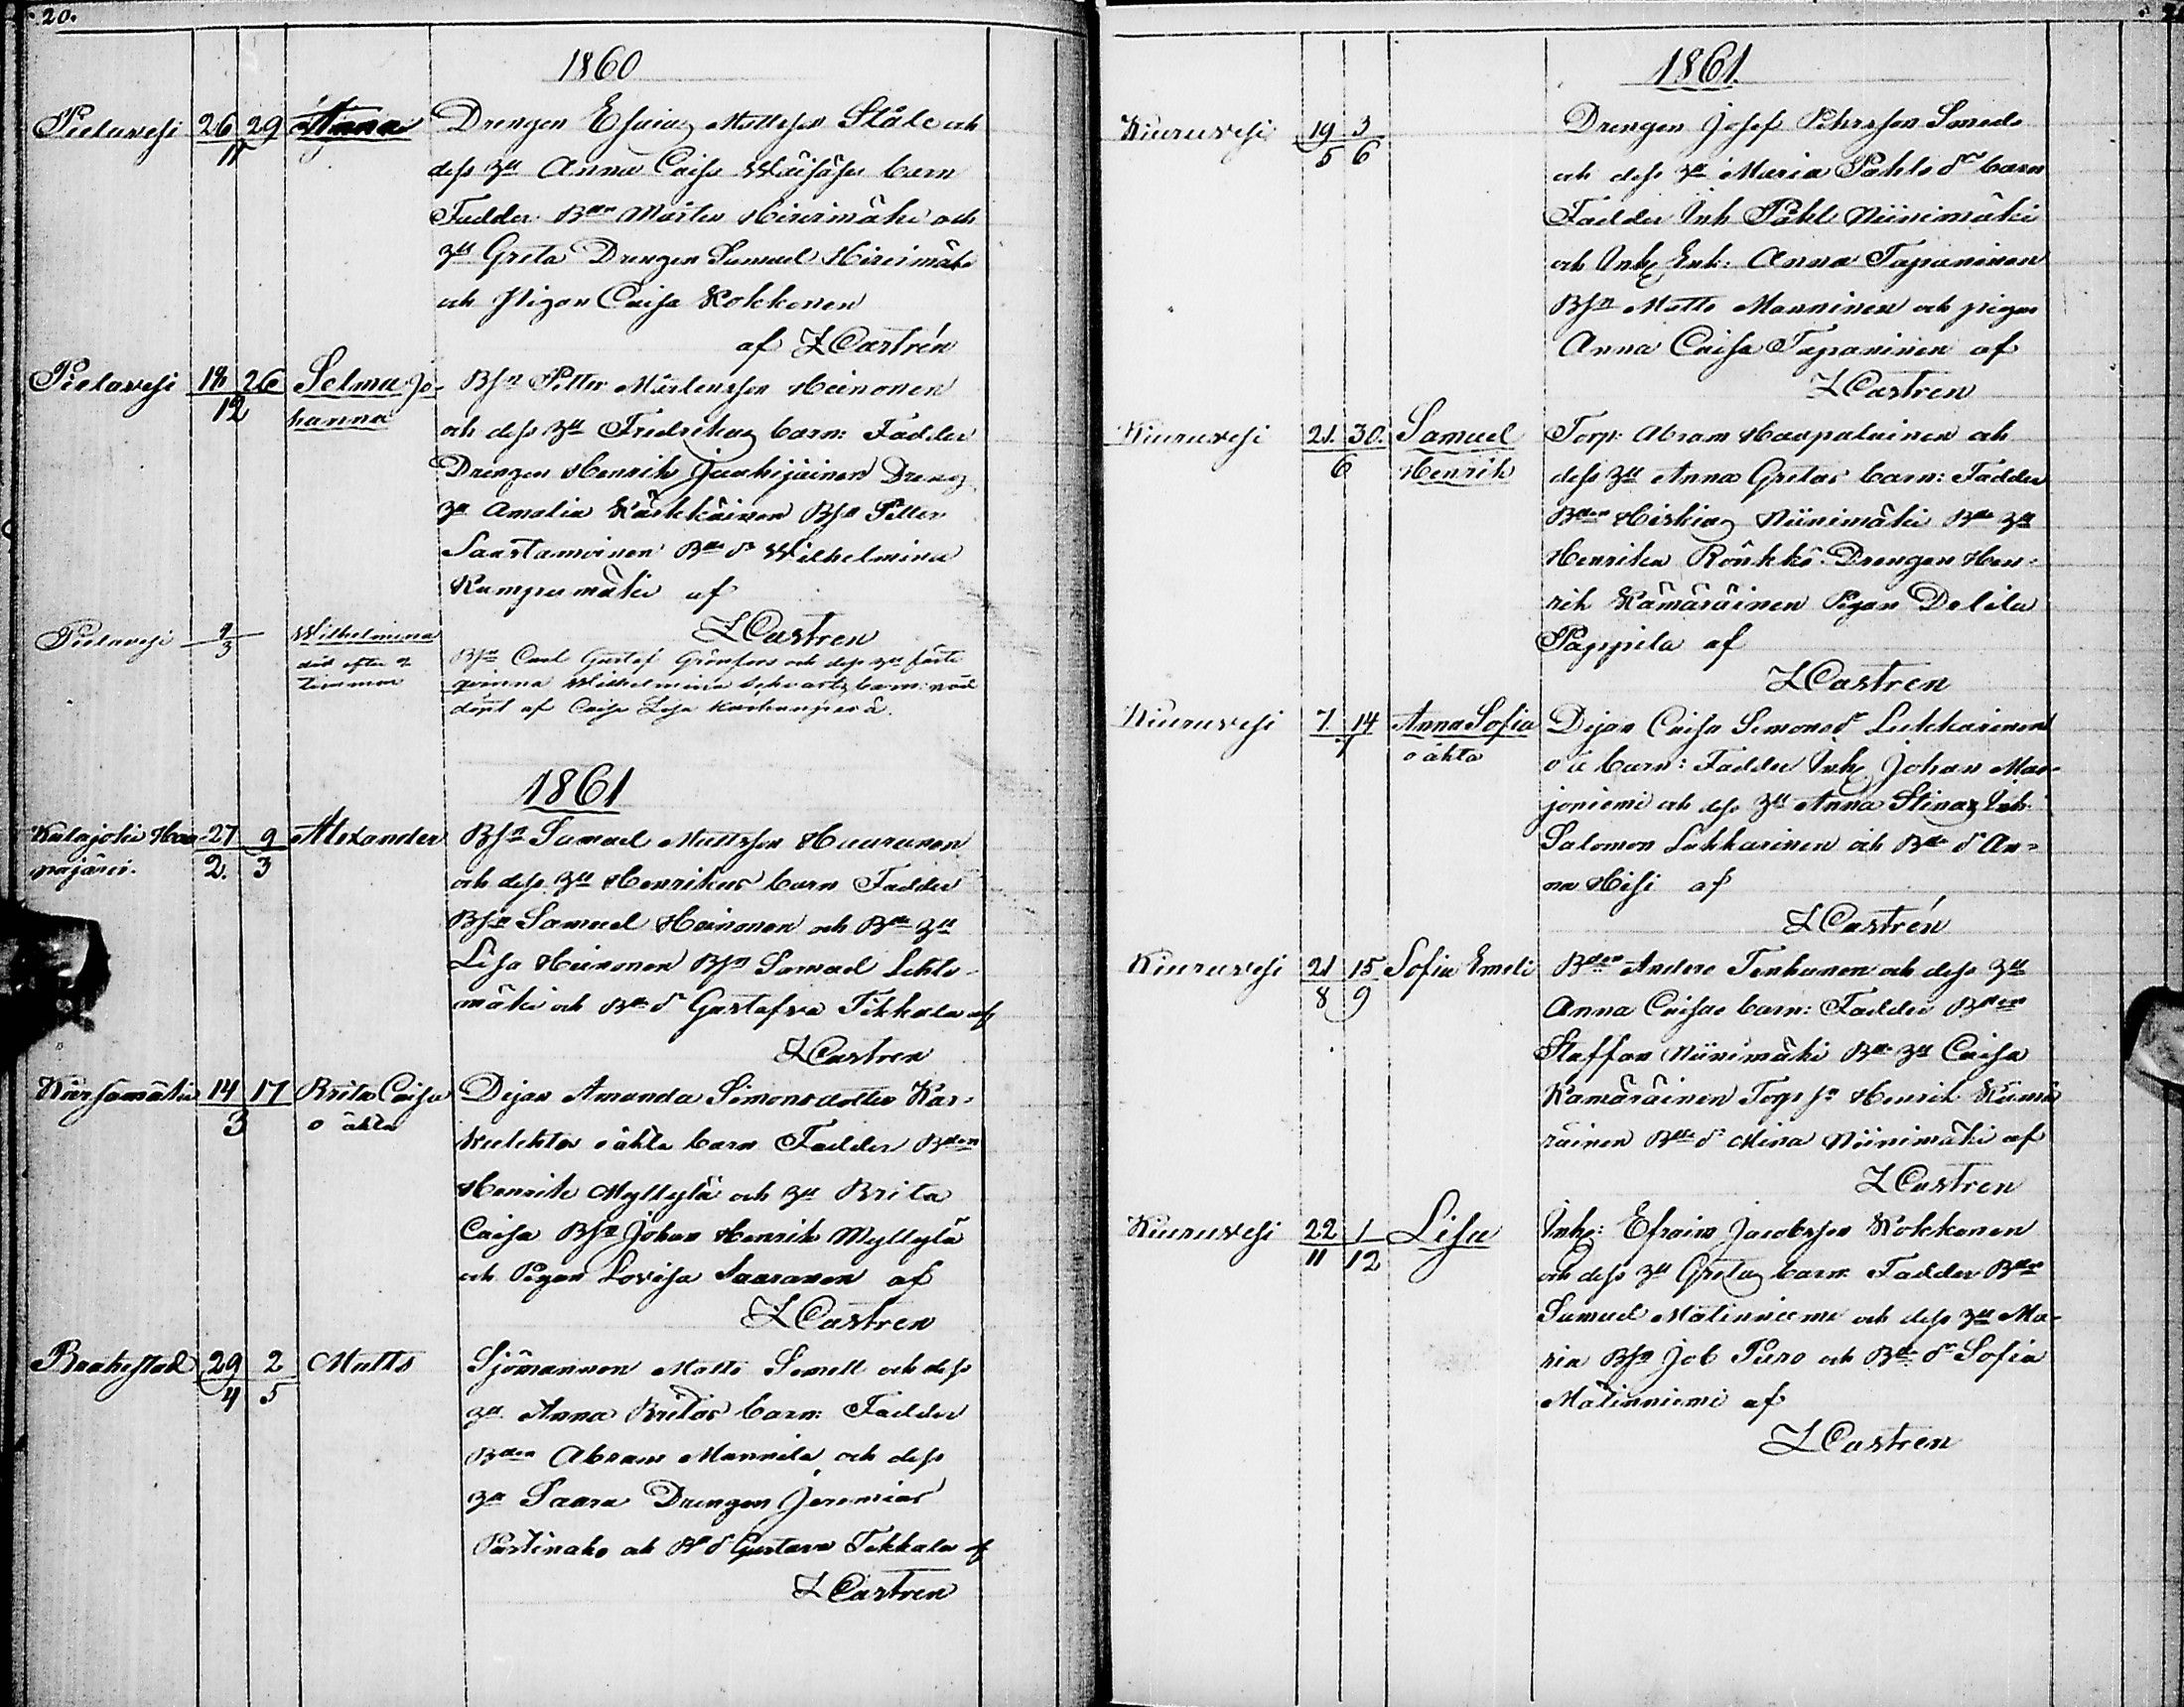 20.
1860
Pielavesi 26 29 Anna Drengen Esaias Mattsson Ståle och
11 dess hu Anna Caisa Wäisäses barn
Fadder: Bden Mårten Hirsimäki och
hu Greta Drengen Samuel Hirsimäki
och Pigan Caisa Kokkonen
af Z Castrén
Pielavesi 18 26 Selma Jo- Bsn Petter Mårtensson Heinonen
12 hanna och dess hu Fredrikas barn: Fadder
Drengen Henrik Jauhijäinen Dreng
hu Amalia Kärkkäinen Bsn Petter
Saastamoinen Bde dr Wilhelmina
Kumpumäki af
Z Castren
Pielavesi 9 Wilhelmina
3 död efter 2 Bsn Carl Gustaf Grönfors och dess hu förste
timmar qvinna Wilhelmina Schvartz barn: nöd
döpt af Caisa Lisa Karhunperä.
1861
Kalajoki Haa- 27 9 Alexander Bsn Samuel Mattsson Huurunen
pajärvi. 2. 3 och dess hu Henrikas barn Fadder
Bsn Samuel Heinonen och Bde hu
Lisa Heinonen Bsn Samuel Lehto-
mäki och Bde dr Gustafva Tikkala af
Z Castren
Kärsämäki 14 17 Brita Caisa Pigan Amanda Simonsdotter Kar-
3 o äkta oäkta barn Fadder Bden
Henrik Myllylä och hu Brita
Caisa Bsn Johan Henrik Myllylä
och Pigan Lovisa Saaranen af
Z Castren
Brahestad 29 2 Matts Sjömannen Matts Semell och dess
4 5 hu Anna Britas barn: Fadder
Bden Abram Mannila och dess
hu Saara Drengen Jeremias
Pastinaho och Bde dr Gustava Tikkala af
Z Castren
1861.
Kiuruvesi 19 3 Drengen Josef Pehrsson Smeds
5 6 och dess hu Maria Pahls dr barn
Fadder Inh Påhl Niinimäki
och Inhs Enk: Anna Tapaninen
Bsn Matts Manninen och pigan
Anna Caisa Tapaninen af
Z Castren
Kiuruvesi 21. 30. Samuel Torp: Abram Haapalainen och
6 Henrik dess hu Anna Gretas barn: Fadder
Bden Hiskias Niinimäki Bde hu
Henrika Rönkkö Drengen Hen-
rik Kämäräinen Pigan Delila
Pappila af
Z Castren
Kiuruvesi 7. 14 Anna Sofia Pigan Caisa Simonsdr Lukkarinens
7 o äkta o ä barn: Fadder Inhs Johan Mar-
joniemi och dess hu Anna Stina Inh
Salomon Lukkarinen och Bde dr An-
na Hisi af
Z Castrén
Kiuruvesi 21 15 Sofia Emeli Bden Anders Tenhunen och dess hu
8 9 Anna Caisas barn: Fadder Bden
Staffan Niinimäki Bde hu Caisa
Kämäräinen Torp sn Henrik Kämä
räinen Bde dr Mina Niinimäki af
Z Castren
Kiuruvesi 22 1 Lisa Inhs: Efraim Jacobsson Kokkonen
11 12 och dess hu Gretas barn: Fadder Bden
Samuel Mätinniemi och dess hu Ma-
ria Bsn Job Puro och Bde dr Sofia
Mätinniemi af
Z Castren